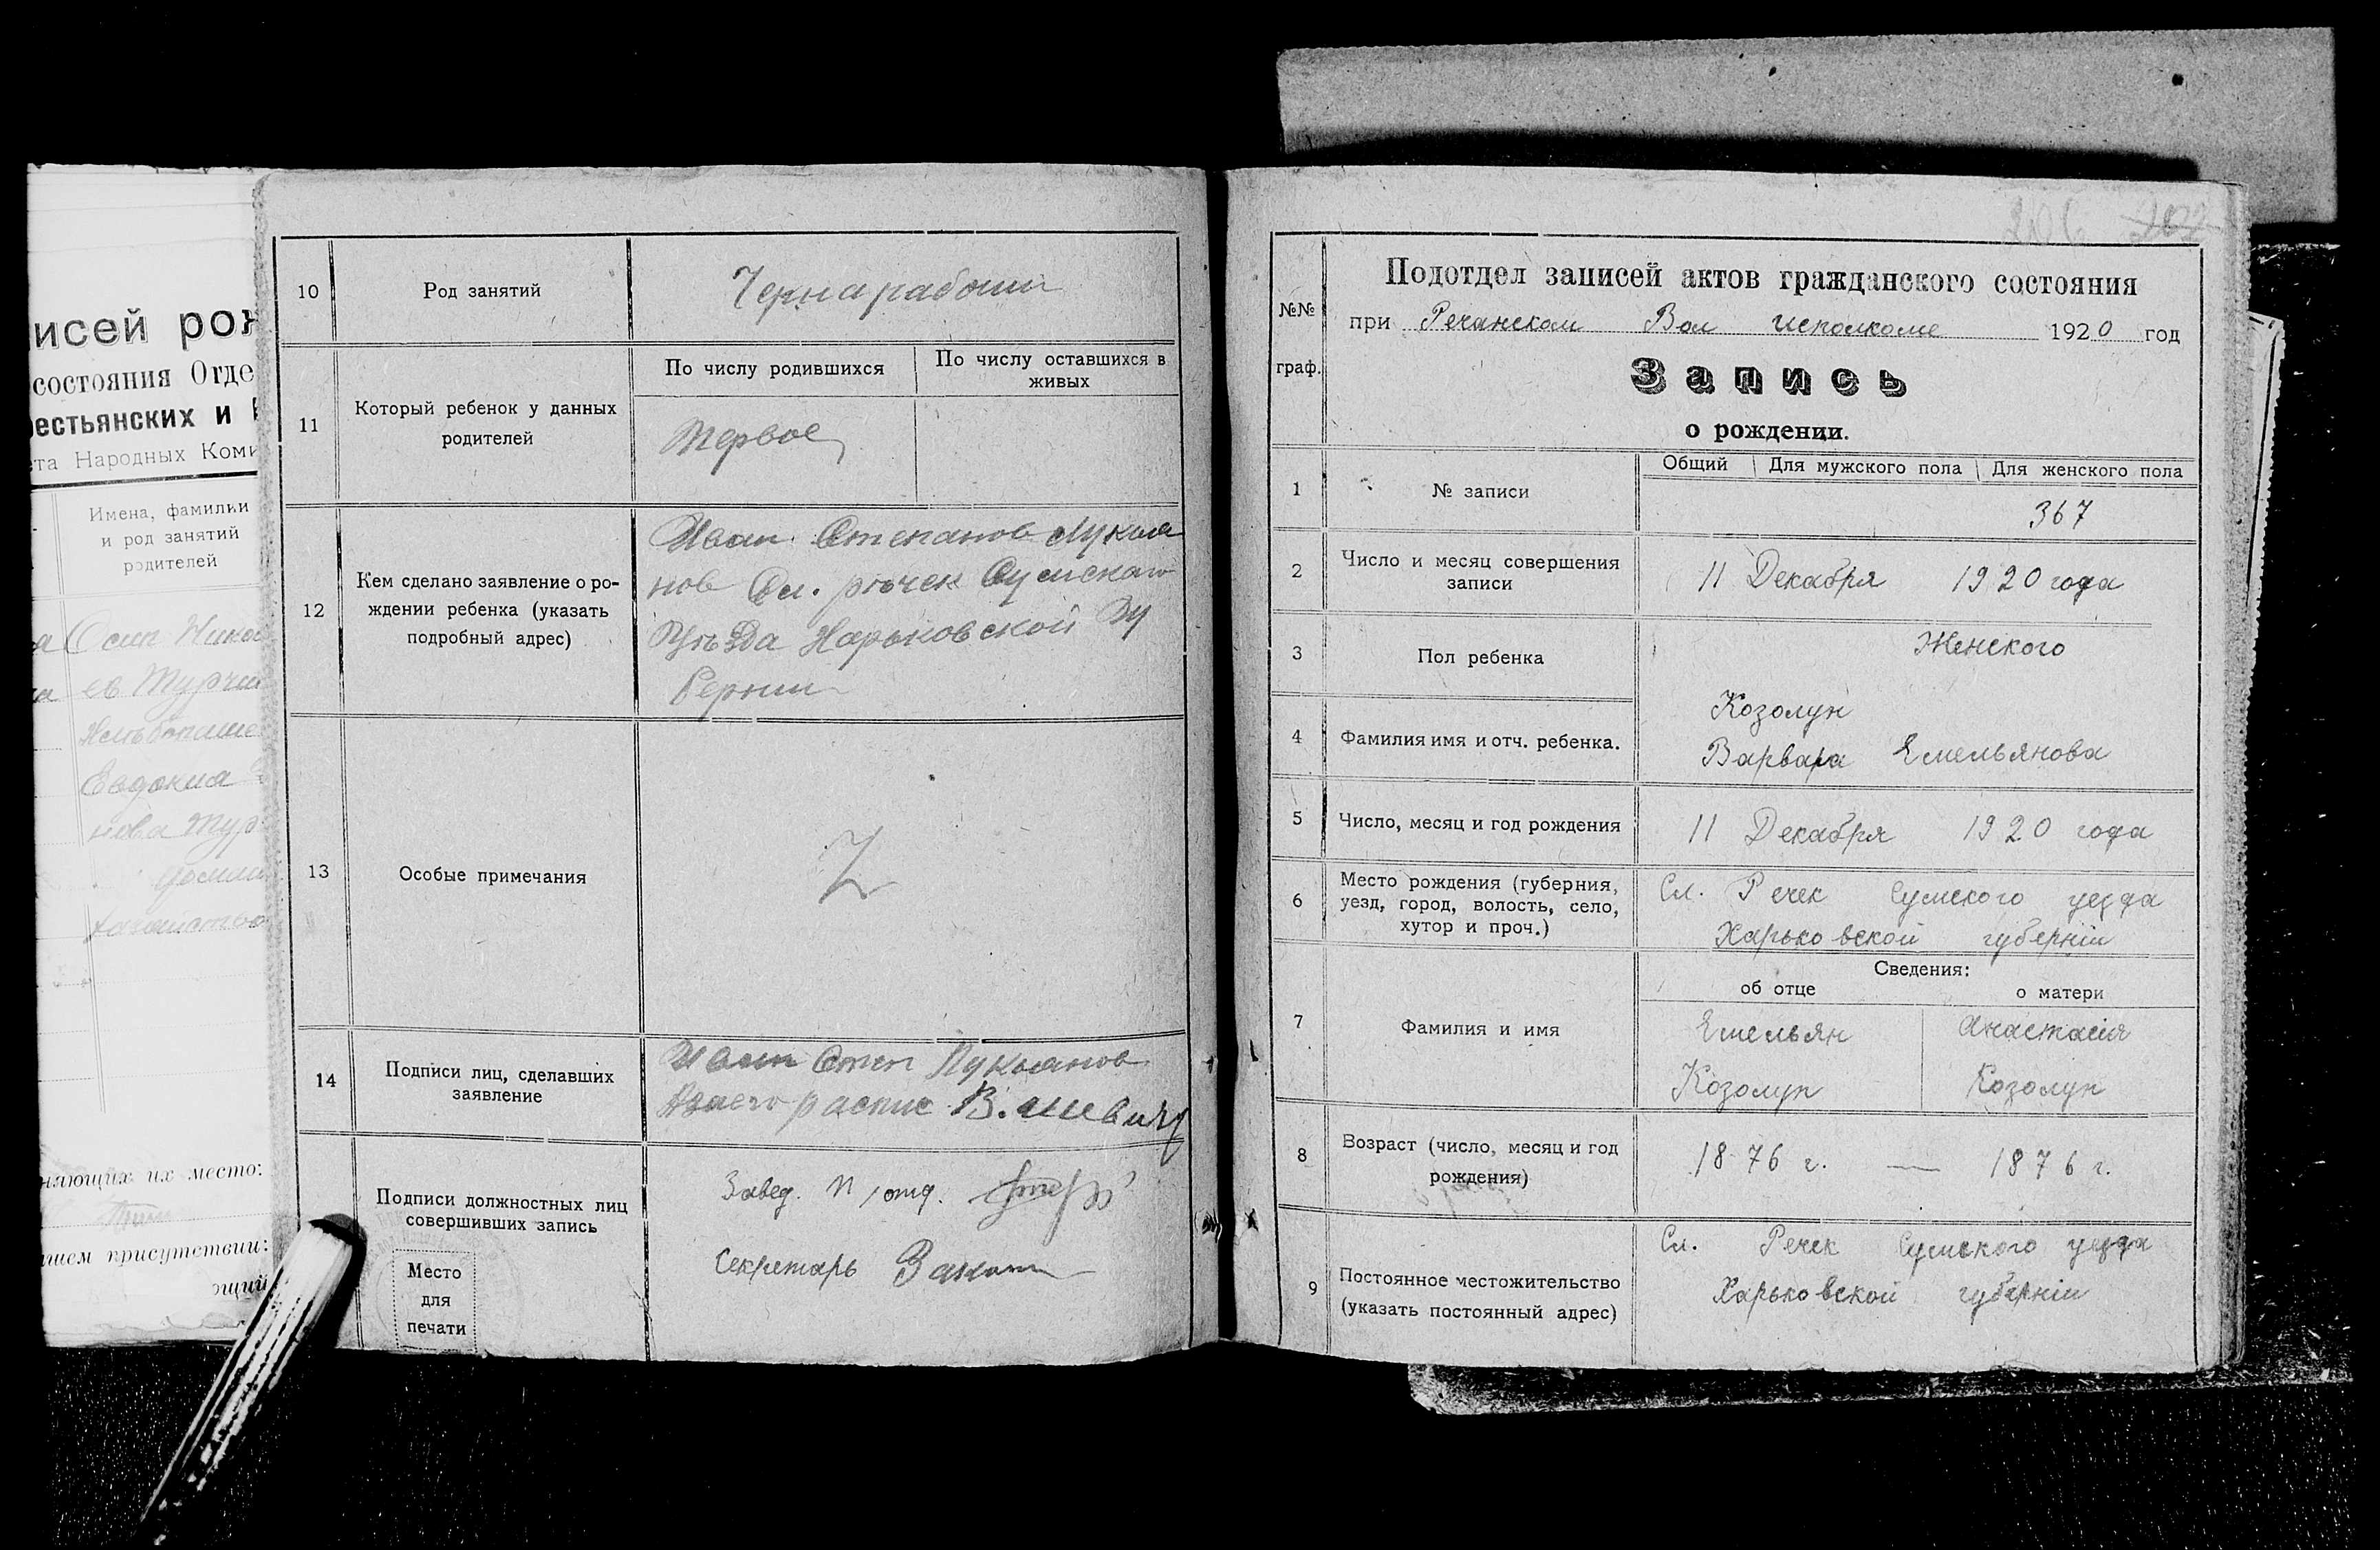 исей рож
состояния Отде
рестьянских и К
ета Народных Коми
Имена, фамилии
и род занятий
родителей
Осип Никол
ев Турчи
Евдокиа
нова Тур
няющих их место:
шем присутствии:
ющий
10
Род занятий
Чернарабочии
11
Который ребенок у данных
родителей
По числу родившихся
По числу оставшихся в
живых
Первое
12
Кем сделано заявление о ро-
ждении ребенка (указать
подробный адрес)
Иван Степанов Лукиа
нов Сл. рѣчек Сумскаго
Уѣзда Харьковской Гу
Бернии
13
Особые примечания
14
Подписи лиц, сделавших
заявление
Иван Степ Лукианов
распис В.
Подписи должностных лиц
совершивших запись
Завед. П/отд.
Секретарь
Место
для
печати
206 202
№№
граф.
Подотдел записей актов гражданского состояния
при Речанском Вол исполкоме 1920 год
Запись
о рождении.
1
№ записи
Общий
Для мужского пола
Для женского пола
367
2
Число и месяц совершения
записи
11 Декабря 1920 года
3
Пол ребенка
Женского
4
Фамилия имя и отч. ребенка.
Козолуп
Варвара Емельянова
5
Число, месяц и год рождения
11 Декабря 1920 года
6
Место рождения (губерния,
уезд, город, волость, село,
хутор и проч.)
Сл. Речек Сумского уезда
Харьковской губерніи
7
Фамилия и имя
Сведения:
об отце
о матери
Емельян
Козолуп
Анастасія
Козолуп
8
Возраст (число, месяц и год
рождения)
1876 г. — 1876 г.
9
Постоянное местожительство
(указать постоянный адрес)
Сл. Речек Сумского уезда
Харьковской губерніи